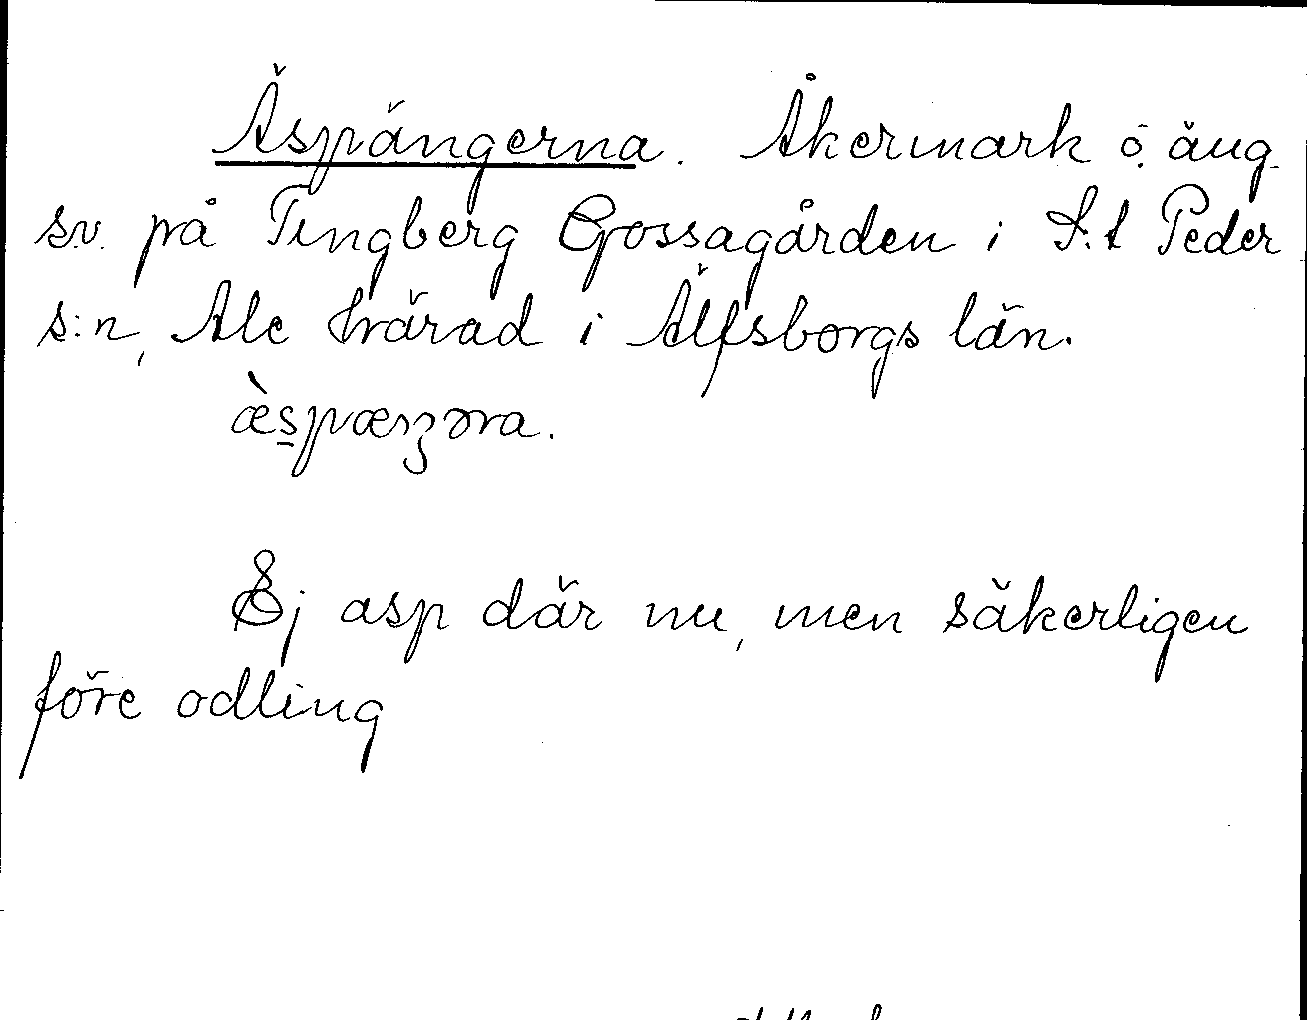 Äspängerna. Åkermark o. äng
sv. på Tingberg Gossagården i S:t Peder
s:n, Ale härad i Älfsborgs län.
æ̀spæŋəra.
Ej asp där nu, men säkerligen
före odling